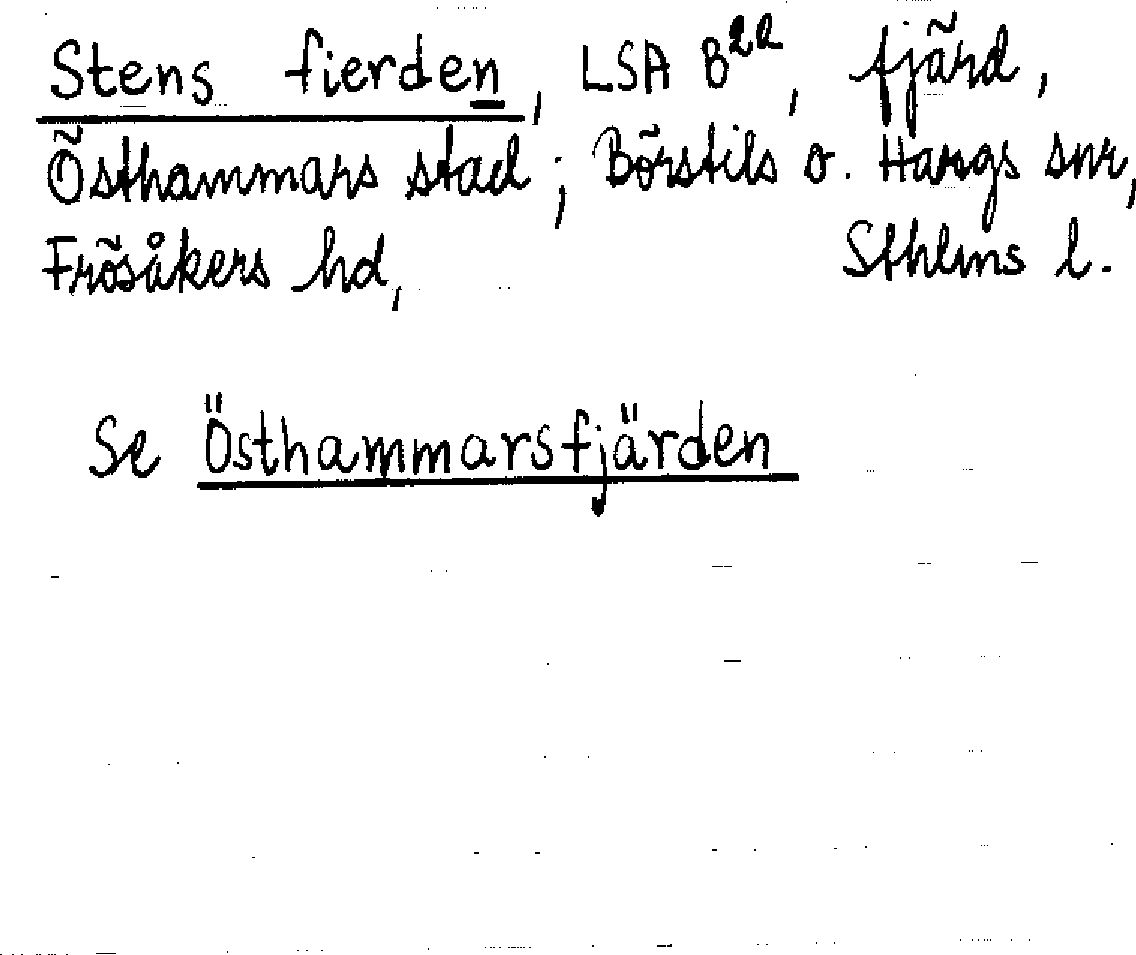 Stens fierden, LSA B2a, fjärd,
Östhammars stad; Börstils o. Hargs snr,
Frösåkers hd, Sthlms l.
Se Östhammarsfjärden